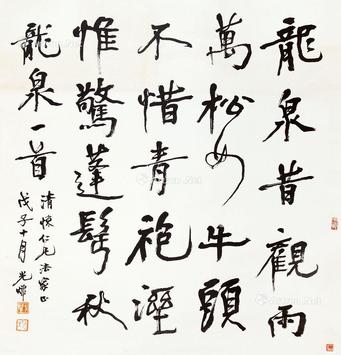 龍泉昔觀雨
萬松如牛頭
不惜青袍溼
惟驚蓬髩秋
龍泉一首
清懷仁兄法家正
戊子十月光暉